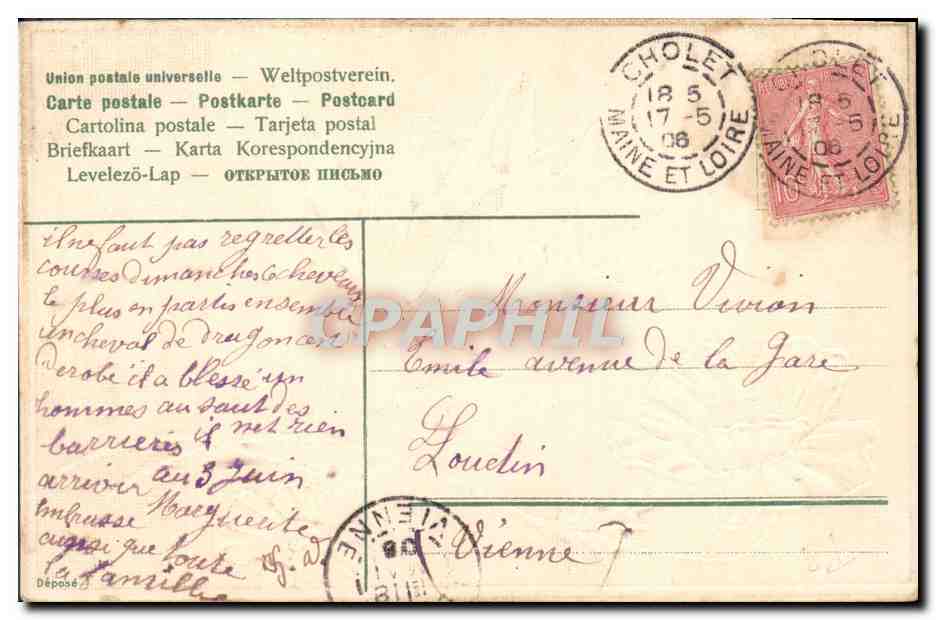 Union postale universelle — Weltpostverein.
Carte postale — Postkarte — Postcard
Cartolina postale — Tarjeta postal
Briefkaart — Karta Korespondencyjna
Levelezö-Lap — ОТКРЫТОЕ ПИСЬМО
CHOLET
18 5
17 -5
06
MAINE ET LOIRE
CHOLET
18 5
5
06
MAINE ET LOIRE
10
il ne faut pas regretter les
courses dimanches chevaux
le plus en partis ensemble
un cheval de dragon
derobé il a blessé un
hommes au saut des
barrieres il net rien
arrivir au 3 Juin
Marguerite
embrasse
ausi que toute
la famille
Déposé
Monsieur Vivion
Emile avenue de la Gare
Loudin
Vienne
VIENNE
06
CPAPHIL